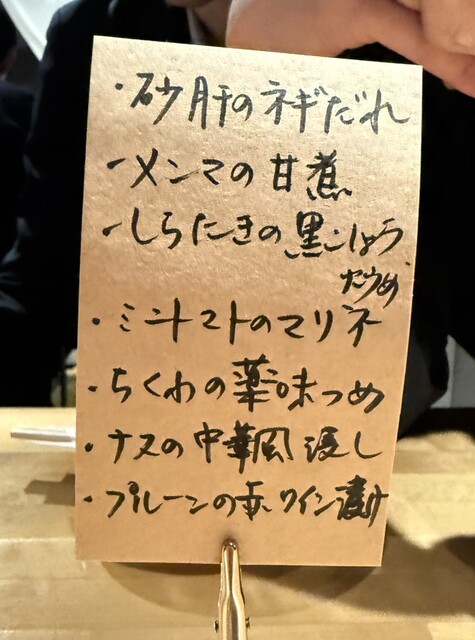 ・砂肝のネギだれ
・メンマの甘煮
・しらたきの黒こしょう
炒め
・ミニトマトのマリネ
・ちくわの薬味つめ
・ナスの中華風浸し
・プルーンの赤ワイン漬け